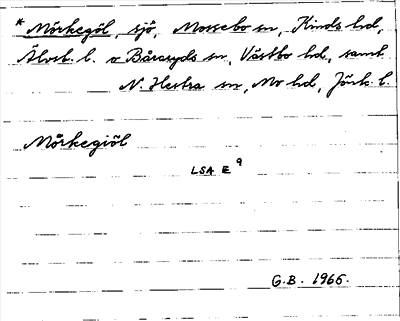 * Mörkegöl, sjö, Mossebo sn, Kinds hd,
Älvsb. l. o Båraryds sn, Västbo hd, samt
N. Hestra sn, Mo hd, Jönk. l.
Mörkegiöl
LSA E 9
G.B. 1965.